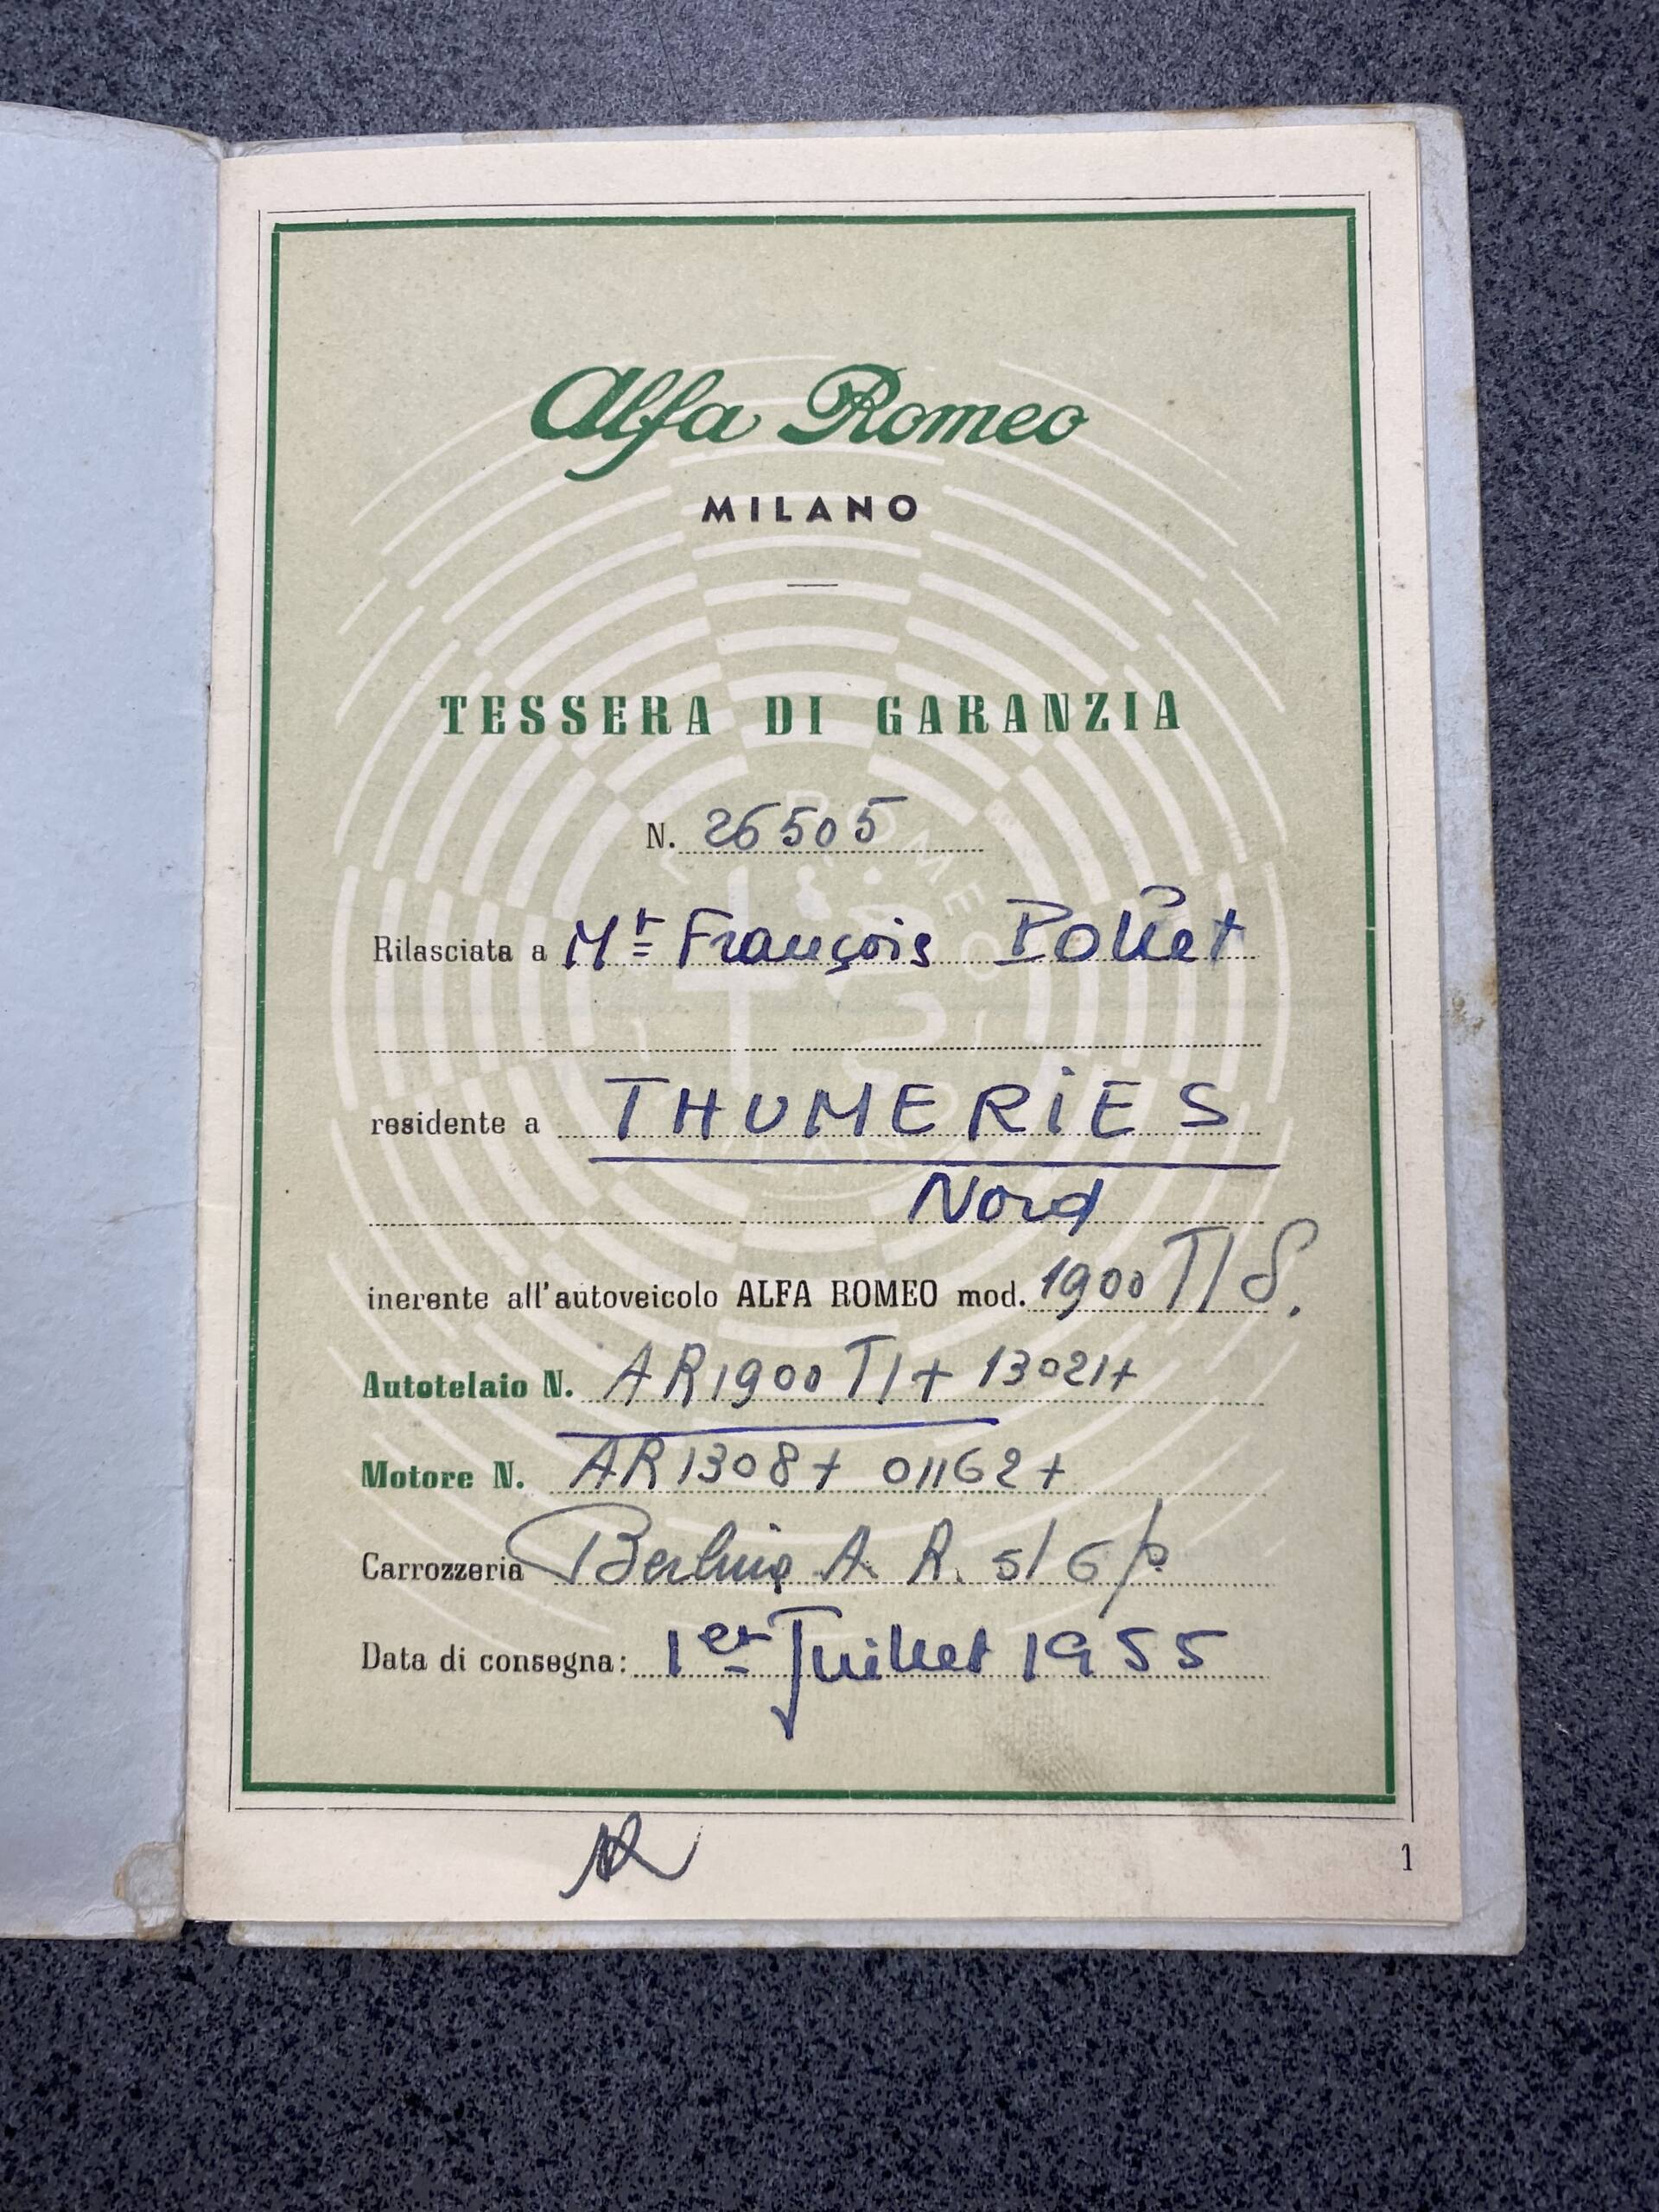 Alfa Romeo
MILANO
TESSERA DI GARANZIA
N. 26505
Rilasciata a Mr François Pollet
residente a THUMERIES
Nord
inerente all'autoveicolo ALFA ROMEO mod. 1900 TI S.
Autotelaio N. AR1900 TI+ 13021+
Motore N. AR1308+ 01162+
Carrozzeria Berlina A. R. 5/6 p
Data di consegna: 1er Juillet 1955
1